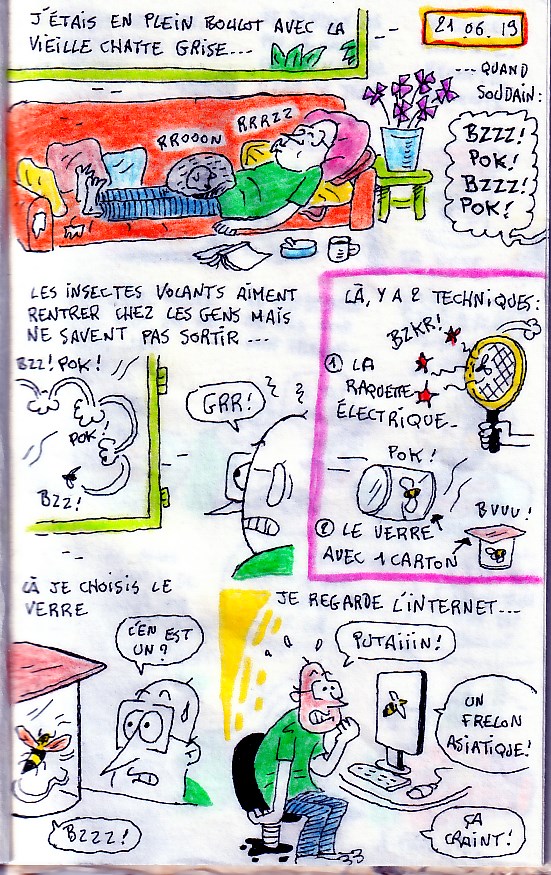 J'ÉTAIS EN PLEIN BOULOT AVEC LA
VIEILLE CHATTE GRISE...
21.06.19
...QUAND
SOUDAIN:
RROOON
RRRZZ
BZZZ!
POK!
BZZZ!
POK!
LES INSECTES VOLANTS AIMENT
RENTRER CHEZ LES GENS MAIS
NE SAVENT PAS SORTIR...
BZZ! POK!
POK!
BZZ!
GRR!
LÀ, Y A 2 TECHNIQUES:
BZKR!
① LA
RAQUETTE
ÉLECTRIQUE.
POK!
BVUU!
② LE VERRE
AVEC 1 CARTON
LÀ JE CHOISIS LE
VERRE
C'EN EST
UN?
BZZZ!
JE REGARDE L'INTERNET...
PUTAIIIN!
UN
FRELON
ASIATIQUE!
ÇA
CRAINT!